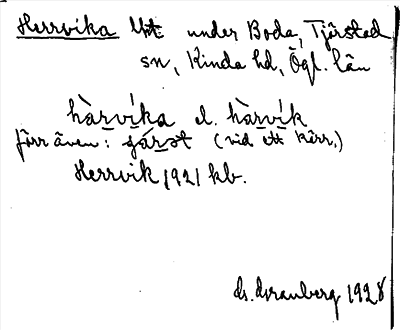 Herrvika under Boda, Tjärstad
sn, Kinda hd, Ögl. län
hàrvíka el. hàrvík
förr även: gárdt (vid ett kärr,)
Herrvik 1921 kb.
1928